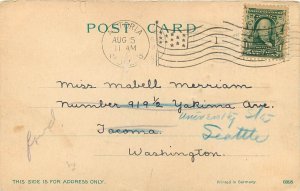 POST CARD
AUG 5
11 AM
1
Miss Mabell Merriam
Number 919½ Yakima Ave.
University
Tacoma.
Seattle
Washington.
THIS SIDE IS FOR ADDRESS ONLY.
Printed in Germany